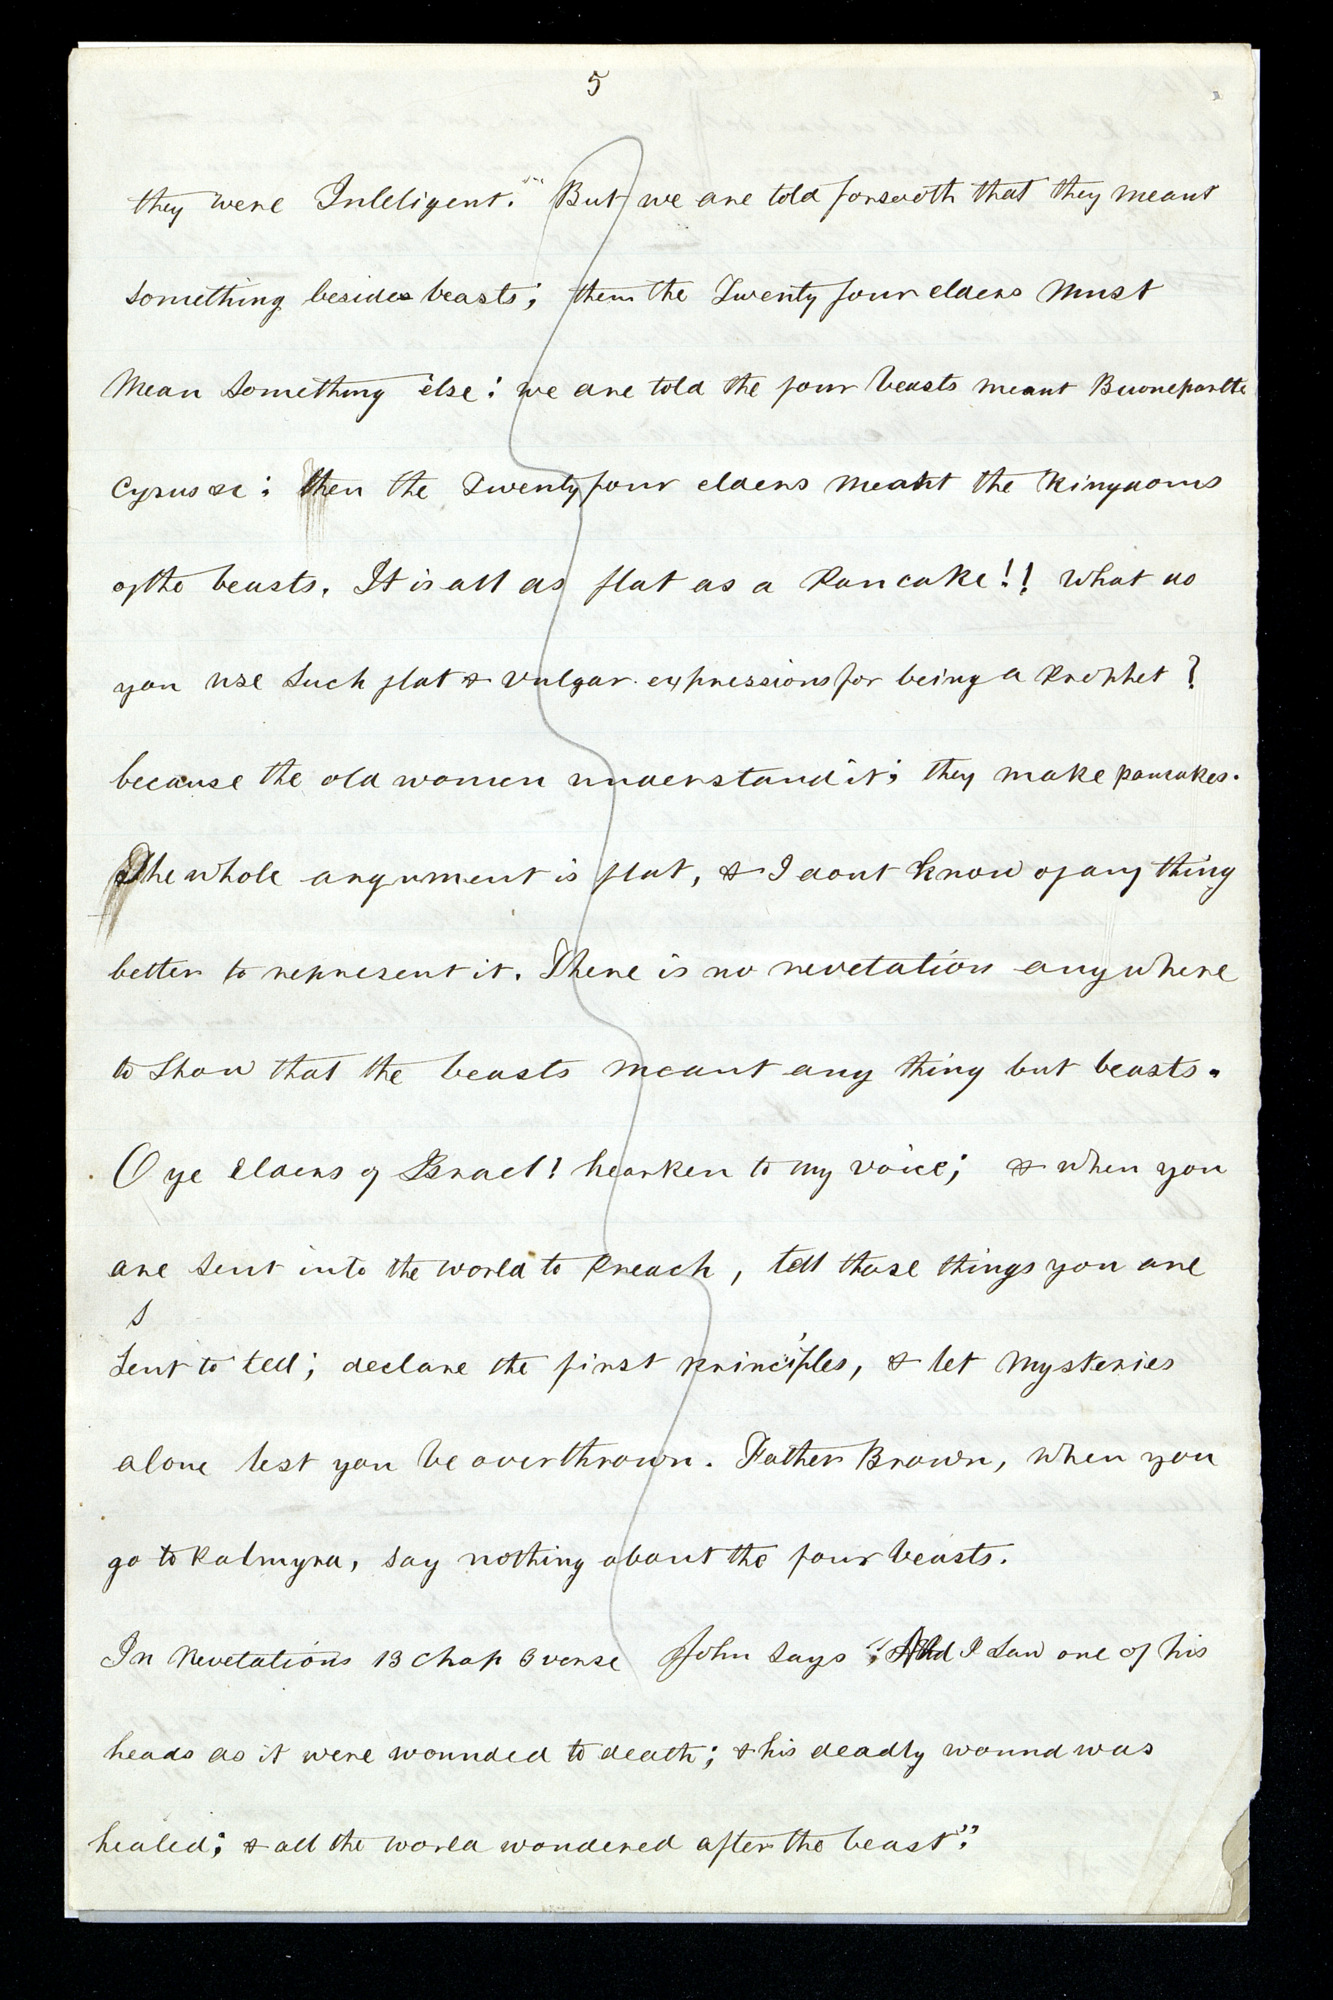 5
they were Intelligent." But we are told forsooth that they meant
something besides beasts; then the Twenty four elders must
mean something else: we are told the four beasts meant Buoneparte
Cyrus &c: then the Twenty four elders meant the Kingdoms
of the beasts. It is all as flat as a Pancake!! What do
you use such flat & vulgar expressions for being a Prophet?
because the old women understand it; they make pancakes.
The whole argument is flat, & I dont know of any thing
better to represent it. There is no revelation anywhere
to Show that the beasts meant any thing but beasts.
O ye Elders of Israel! hearken to my voice; & when you
are sent into the world to Preach, tell those things you are
S
Sent to tell; declare the first principles, & let Mysteries
alone lest you be overthrown. Father Brown, when you
go to Palmyra, say nothing about the four beasts.
In Revelations 13 chap 3 verse John says "And I saw one of his
heads as it were wounded to death; & his deadly wound was
healed; & all the world wondered after the beast".